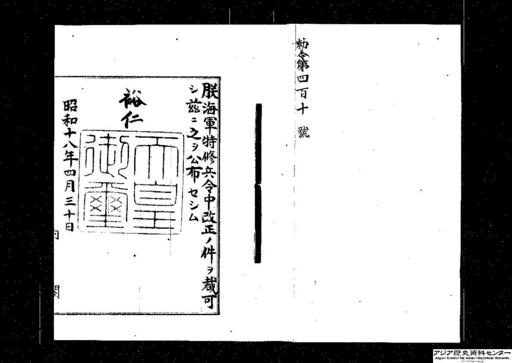 勅令第四百十號
朕海軍特修兵令中改正ノ件ヲ裁可
シ茲ニ之ヲ公布セシム
裕仁
天皇御璽
昭和十八年四月三十日
内閣
アジア歴史資料センター
Japan Center for Asian Historical Records